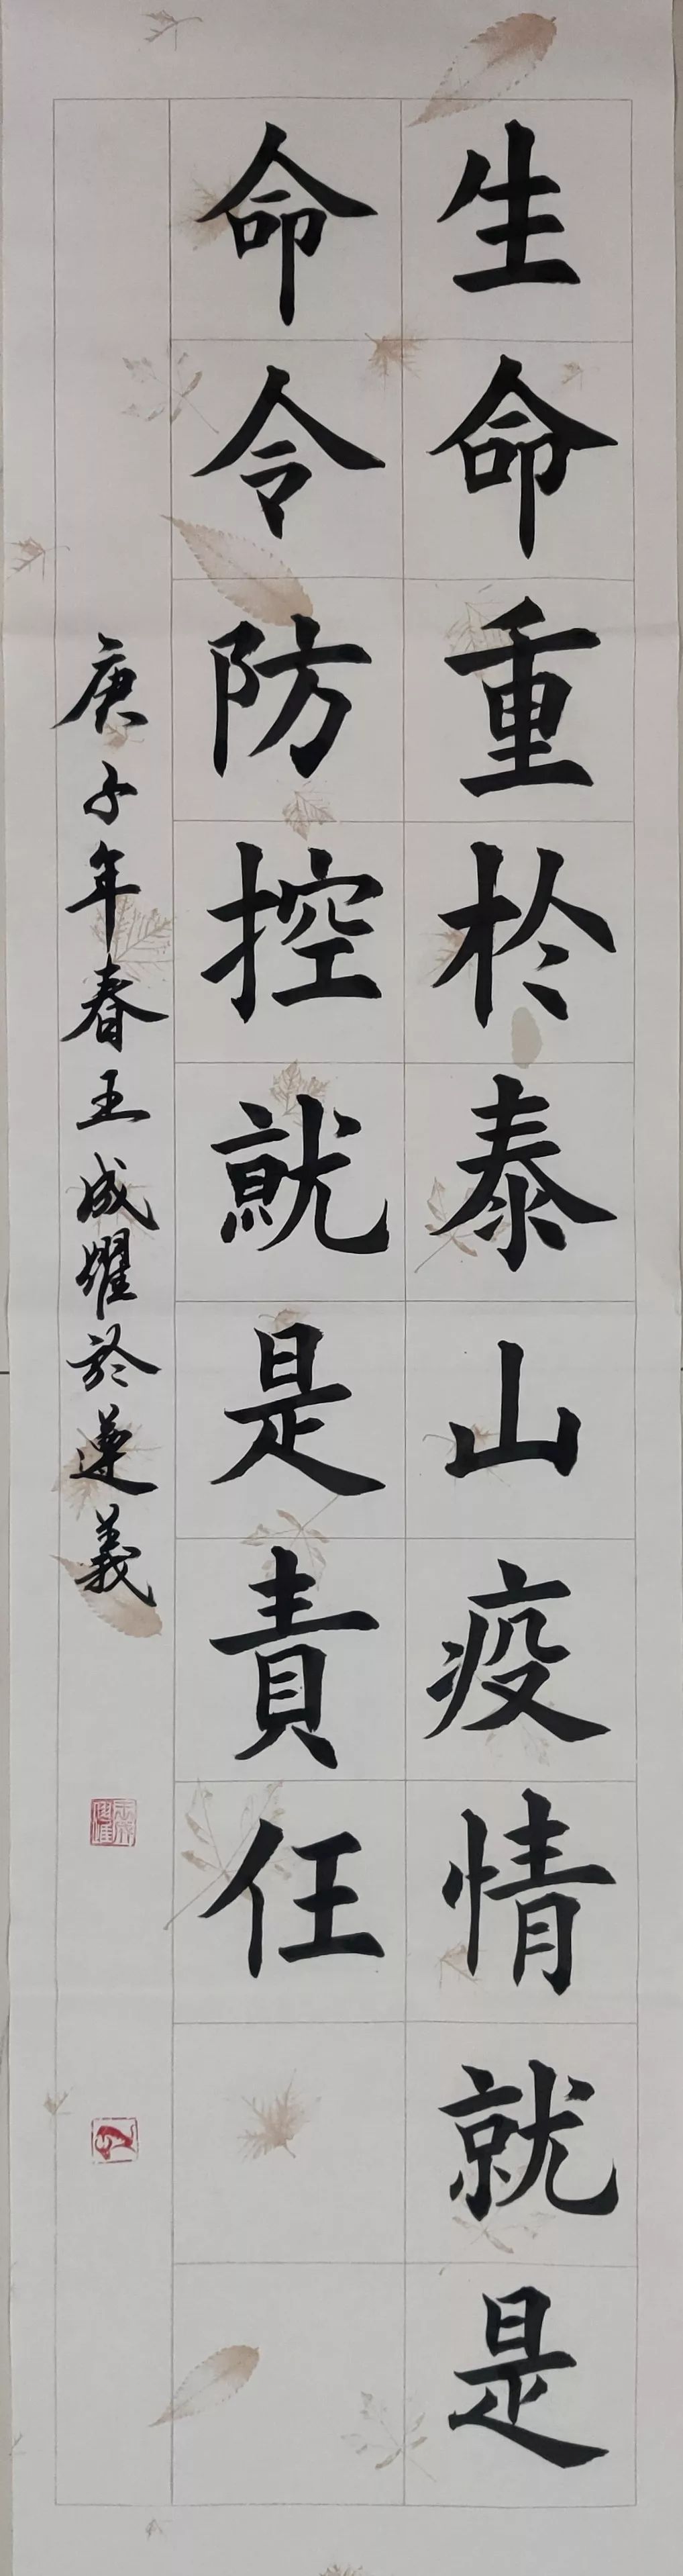 生命重於泰山疫情就是
命令防控就是責任
庚子年春王成耀於遵義